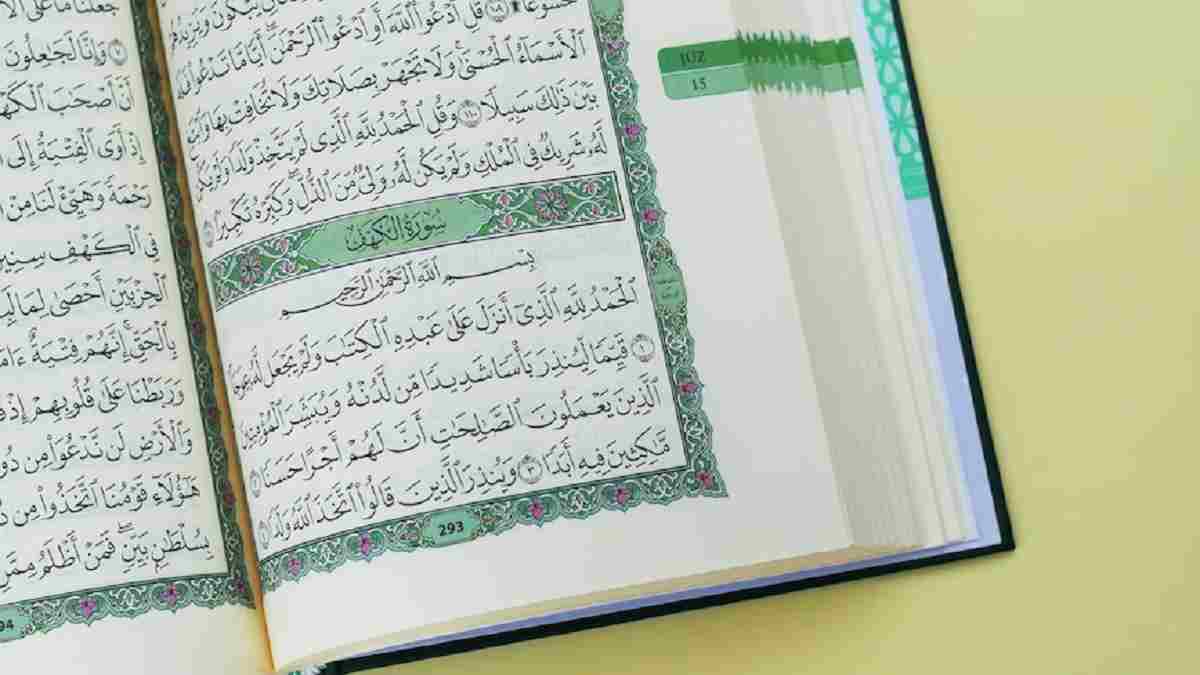 يَبْكُونَ وَيَزِيدُهُمْ
خُشُوعًا ۩ ١٠٩ قُلِ ٱدْعُوا۟ ٱللَّهَ أَوِ ٱدْعُوا۟ ٱلرَّحْمَٰنَ ۖ أَيًّا مَّا تَدْعُوا۟ فَلَهُ
ٱلْأَسْمَآءُ ٱلْحُسْنَىٰ ۚ وَلَا تَجْهَرْ بِصَلَاتِكَ وَلَا تُخَافِتْ بِهَا وَٱبْتَغِ
بَيْنَ ذَٰلِكَ سَبِيلًا ١١٠ وَقُلِ ٱلْحَمْدُ لِلَّهِ ٱلَّذِى لَمْ يَتَّخِذْ وَلَدًا وَلَمْ يَكُن
لَّهُۥ شَرِيكٌ فِى ٱلْمُلْكِ وَلَمْ يَكُن لَّهُۥ وَلِىٌّ مِّنَ ٱلذُّلِّ ۖ وَكَبِّرْهُ تَكْبِيرًۢا
سُورَةُ الكَهْفِ
بِسْمِ ٱللَّهِ ٱلرَّحْمَٰنِ ٱلرَّحِيمِ
ٱلْحَمْدُ لِلَّهِ ٱلَّذِىٓ أَنزَلَ عَلَىٰ عَبْدِهِ ٱلْكِتَٰبَ وَلَمْ يَجْعَل لَّهُۥ عِوَجَاۜ
١ قَيِّمًا لِّيُنذِرَ بَأْسًا شَدِيدًا مِّن لَّدُنْهُ وَيُبَشِّرَ ٱلْمُؤْمِنِينَ
ٱلَّذِينَ يَعْمَلُونَ ٱلصَّٰلِحَٰتِ أَنَّ لَهُمْ أَجْرًا حَسَنًا ٢
مَّٰكِثِينَ فِيهِ أَبَدًا ٣ وَيُنذِرَ ٱلَّذِينَ قَالُوا۟ ٱتَّخَذَ ٱللَّهُ وَلَدًا ٤
293
JUZ
15
جَعَلْنَا مَا عَلَى
وَإِنَّا لَجَٰعِلُونَ
أَنَّ أَصْحَٰبَ ٱلْكَهْفِ
إِذْ أَوَى ٱلْفِتْيَةُ إِلَى
رَحْمَةً وَهَيِّئْ لَنَا مِنْ
فِى ٱلْكَهْفِ سِنِينَ
ٱلْحِزْبَيْنِ أَحْصَىٰ لِمَا
بِٱلْحَقِّ ۚ إِنَّهُمْ فِتْيَةٌ
وَرَبَطْنَا عَلَىٰ قُلُوبِهِمْ إِذْ
وَٱلْأَرْضِ لَن نَّدْعُوَا۟ مِن
هَٰٓؤُلَآءِ قَوْمُنَا ٱتَّخَذُوا۟ مِن
بِسُلْطَٰنٍۭ بَيِّنٍ ۖ فَمَنْ أَظْلَمُ مِمَّنِ